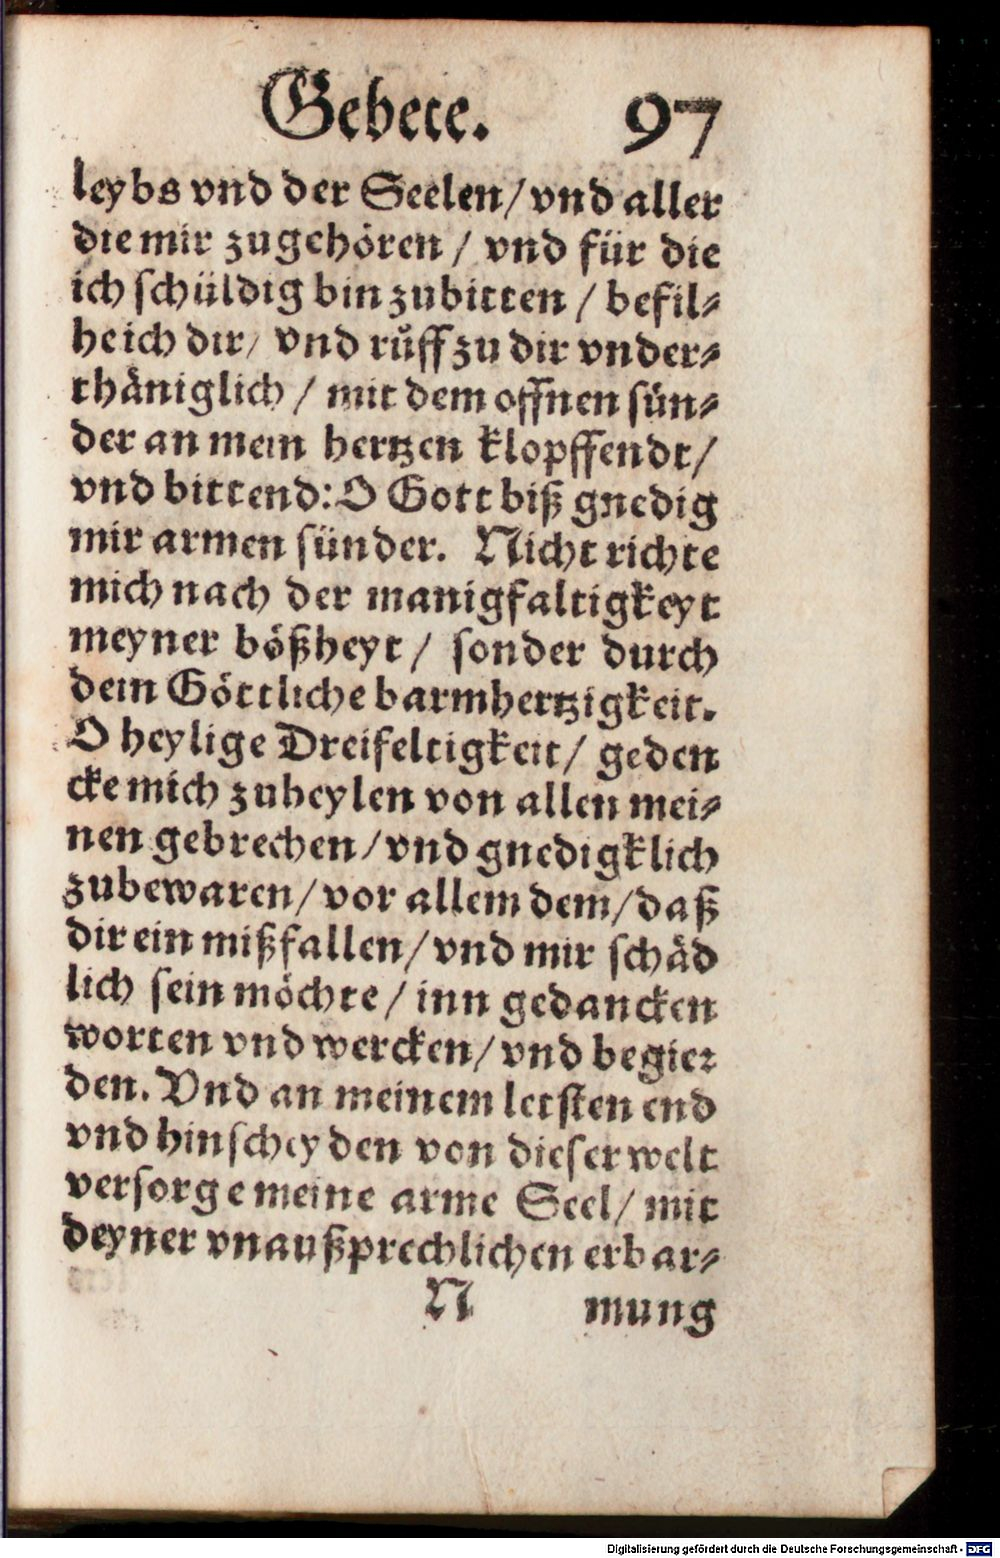 Gebete. 97
leybs vnd der Seelen/ vnd aller
die mir zugehören / vnd für die
ich schüldig bin zubitten / befil⸗
he ich dir/ vnd růff zu dir vnder⸗
thäniglich / mit dem offnen sün⸗
der an mein hertzen klopffendt/
vnd bittend: O Gott biß gnedig
mir armen sünder. Nicht richte
mich nach der manigfaltigkeyt
meyner bößheyt / sonder durch
dein Göttliche barmhertzigkeit.
O heylige Dreifeltigkeit/ geden
cke mich zuheylen von allen mei⸗
nen gebrechen/ vnd gnedigklich
zubewaren/ vor allem dem/ daß
dir ein mißfallen/ vnd mir schäd
lich sein möchte / inn gedancken
worten vnd wercken/ vnd begier
den. Vnd an meinem letsten end
vnd hinscheyden von dieser welt
versorge meine arme Seel/ mit
deyner vnaußprechlichen erbar⸗
N mung
Digitalisierung gefördert durch die Deutsche Forschungsgemeinschaft - DFG